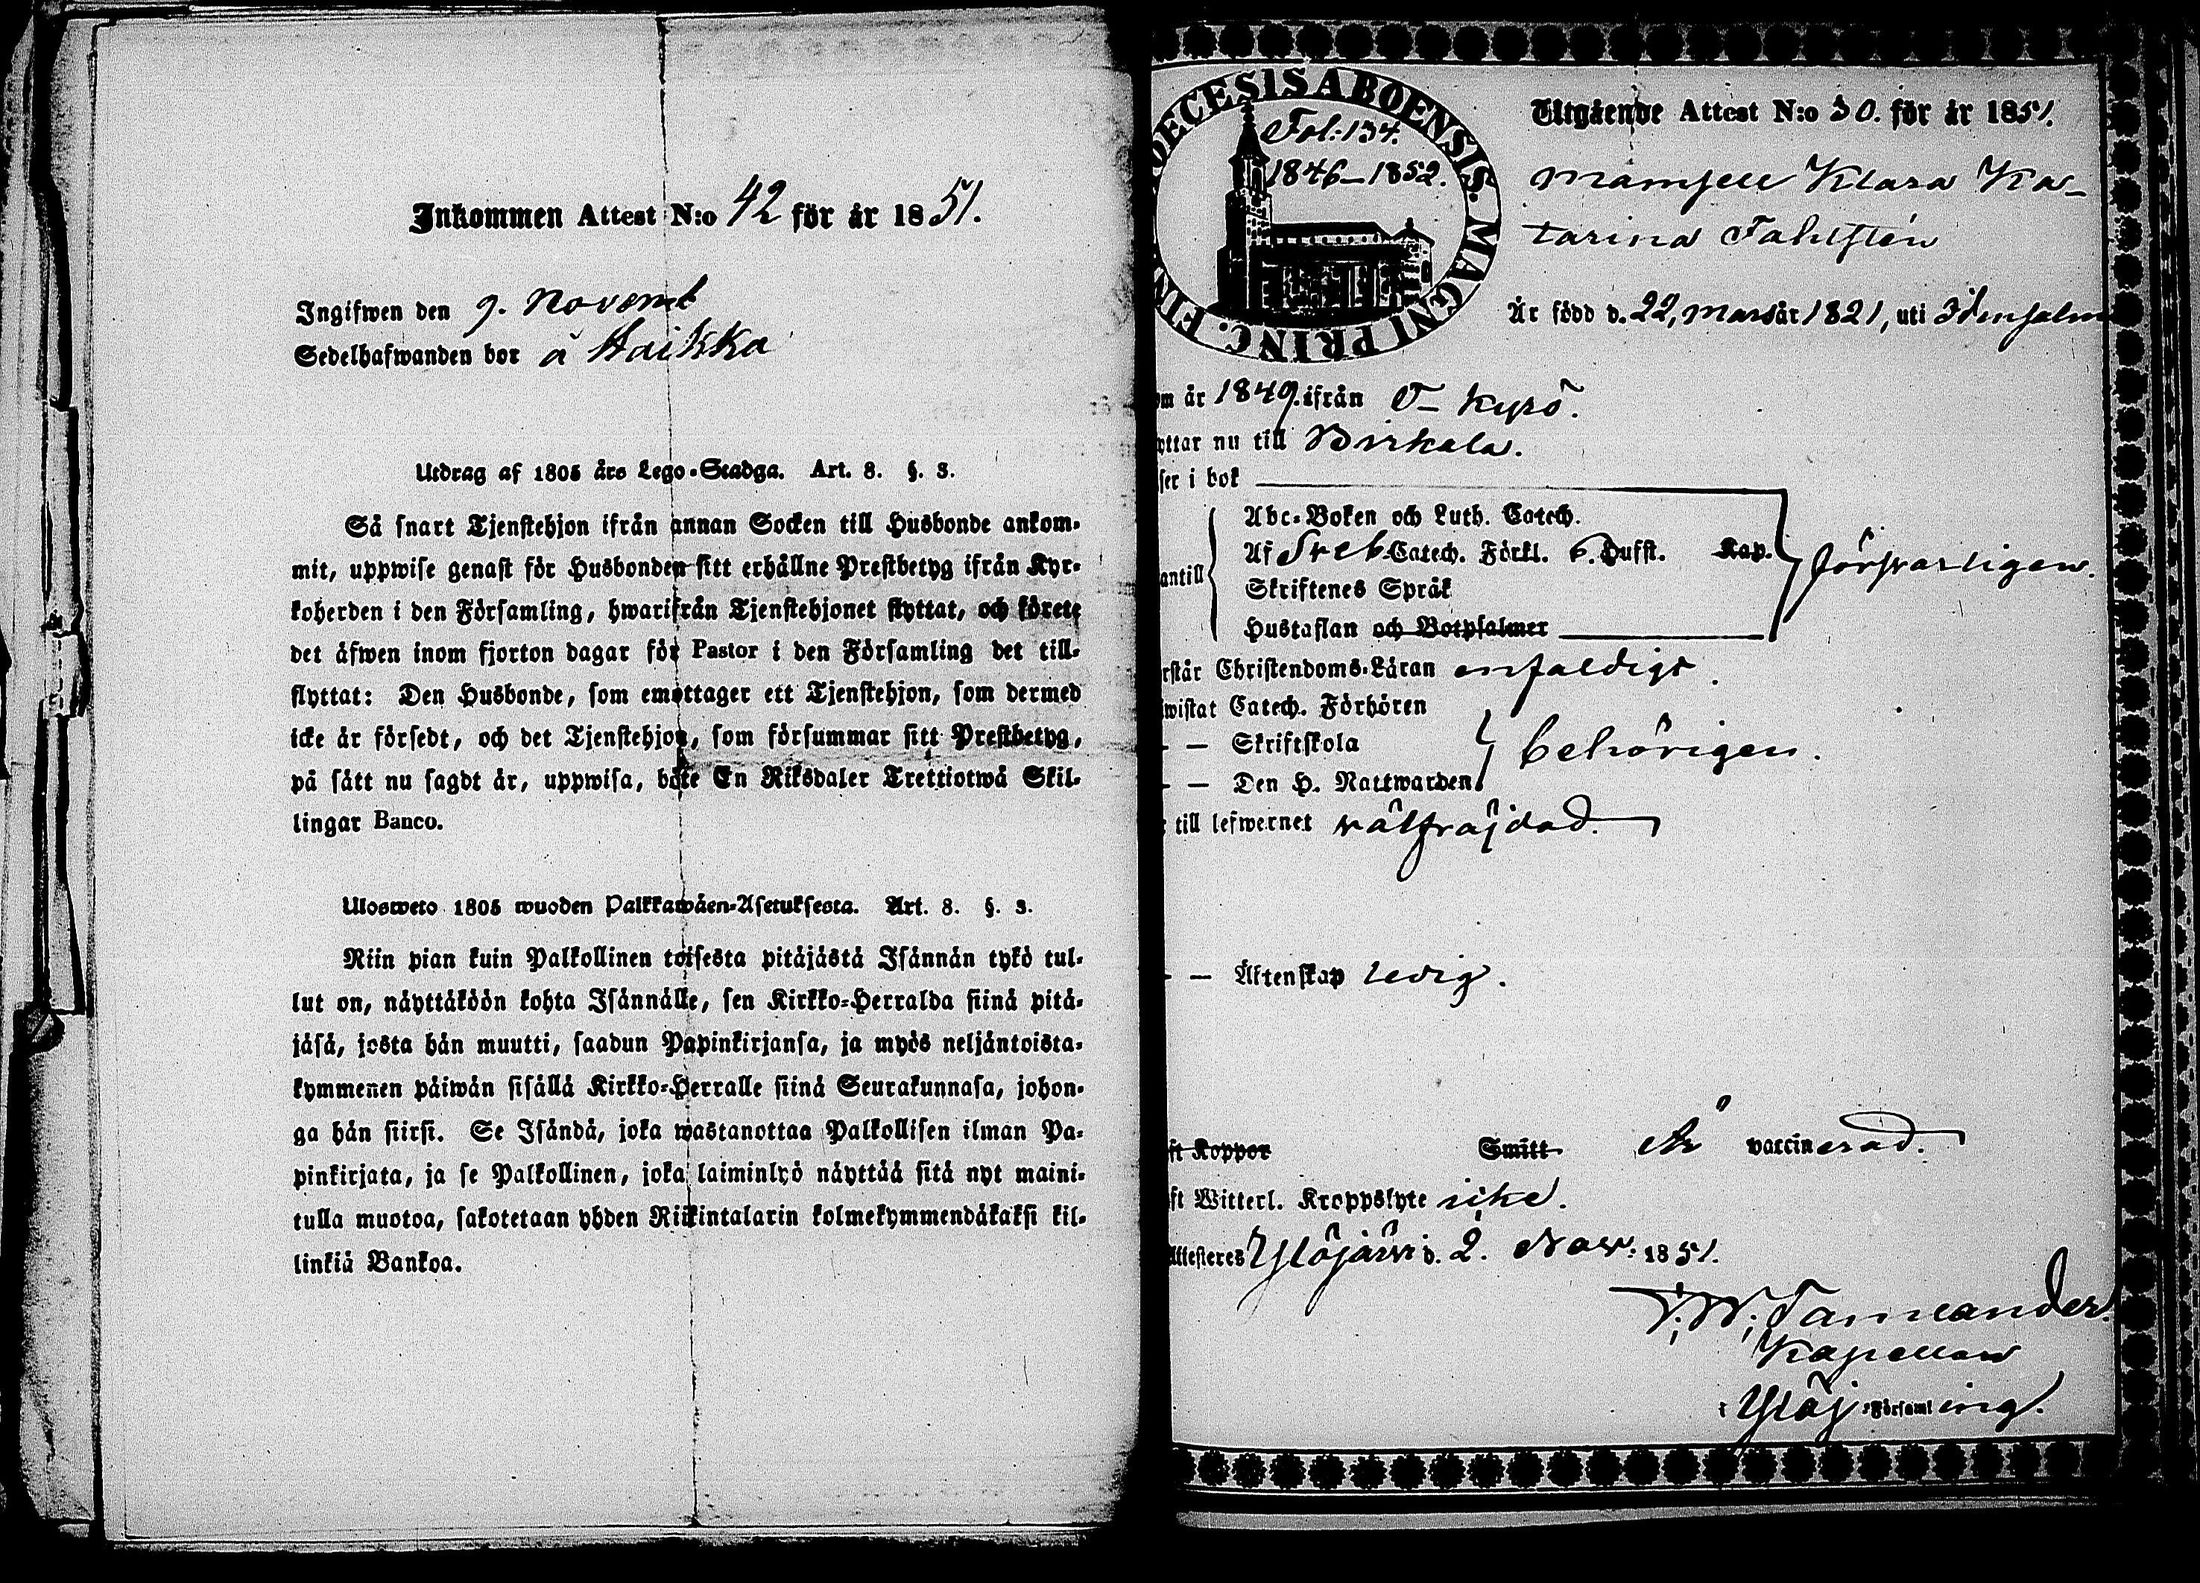 Inkommen Attest N:o 42 för år 1851.
Ingifwen den 9. Novemb
Sedelhafwanden bor å Haikka
Utdrag af 1805 års Lego-Stadga. Art. 8. §. 3.
Så snart Tjenstehjon ifrån annan Socken till Husbonde ankom-
mit, uppwise genast för Husbonden sitt erhållne Prestbetyg ifrån Kyr-
koherden i den Församling, hwarifrån Tjenstehjonet flyttat, och förete
det äfwen inom fjorton dagar för Pastor i den Församling det till-
flyttat: Den Husbonde, som emottager ett Tjenstehjon, som dermed
icke är försedt, och det Tjenstehjon, som försummar sitt Prestbetyg,
på sätt nu sagdt är, uppwisa, böte En Riksdaler Trettiotwå Skil-
lingar Banco.
Ulosweto 1805 wuoden Palkkawäen-Asetuksesta. Art. 8. §. 3.
Niin pian kuin Palkollinen toisesta pitäjästä Isännän tykö tul-
lut on, näyttäköön kohta Isännälle, sen Kirkko-Herralda siinä pitä-
jäsä, josta hän muutti, saadun Papinkirjansa, ja myös neljäntoista-
kymmenen päiwän sisällä Kirkko-Herralle siinä Seurakunnasa, johon-
ga hän siirsi. Se Isändä, joka wastanottaa Palkollisen ilman Pa-
pinkirjata, ja se Palkollinen, joka laiminlyö näyttää sitä nyt maini-
tulla muotoa, sakotetaan yhden Riikintalarin kolmekymmendäkaksi kil-
linkiä Bankoa.
OECESIS ABOENSIS. MAGNI PRINC. FIN
Fol: 134.
1846-1852.
Utgående Attest N:o 30. för år 1851.
Mamsell Klara Ka-
tarina Fahlstén
Är född d. 22, mars år 1821, uti Idensalm
om år 1849. ifrån T- Kyrö.
yttar nu till Birkala.
ser i bok
Abc-Boken och Luth. Catech.
Af Sveb. Catech. Förkl. 6. Hufst. Kap. försvarligen.
antill
Skriftenes Språk
Hustaflan och Botpsalmer
rstår Christendoms-Läran enfaldigt.
wistat Catech. Förhören
- - Skriftskola behörigen.
- - Den H. Nattwarden
till lefwernet välfräjdad.
- - Äktenskap ledig.
ft Koppor Smitt Är vaccinerad.
ft Witterl. Kroppslyte icke.
Attesteres Ylöjärvi d. 2. Nov. 1851.
Kapellan
i Ylöj. Församling.